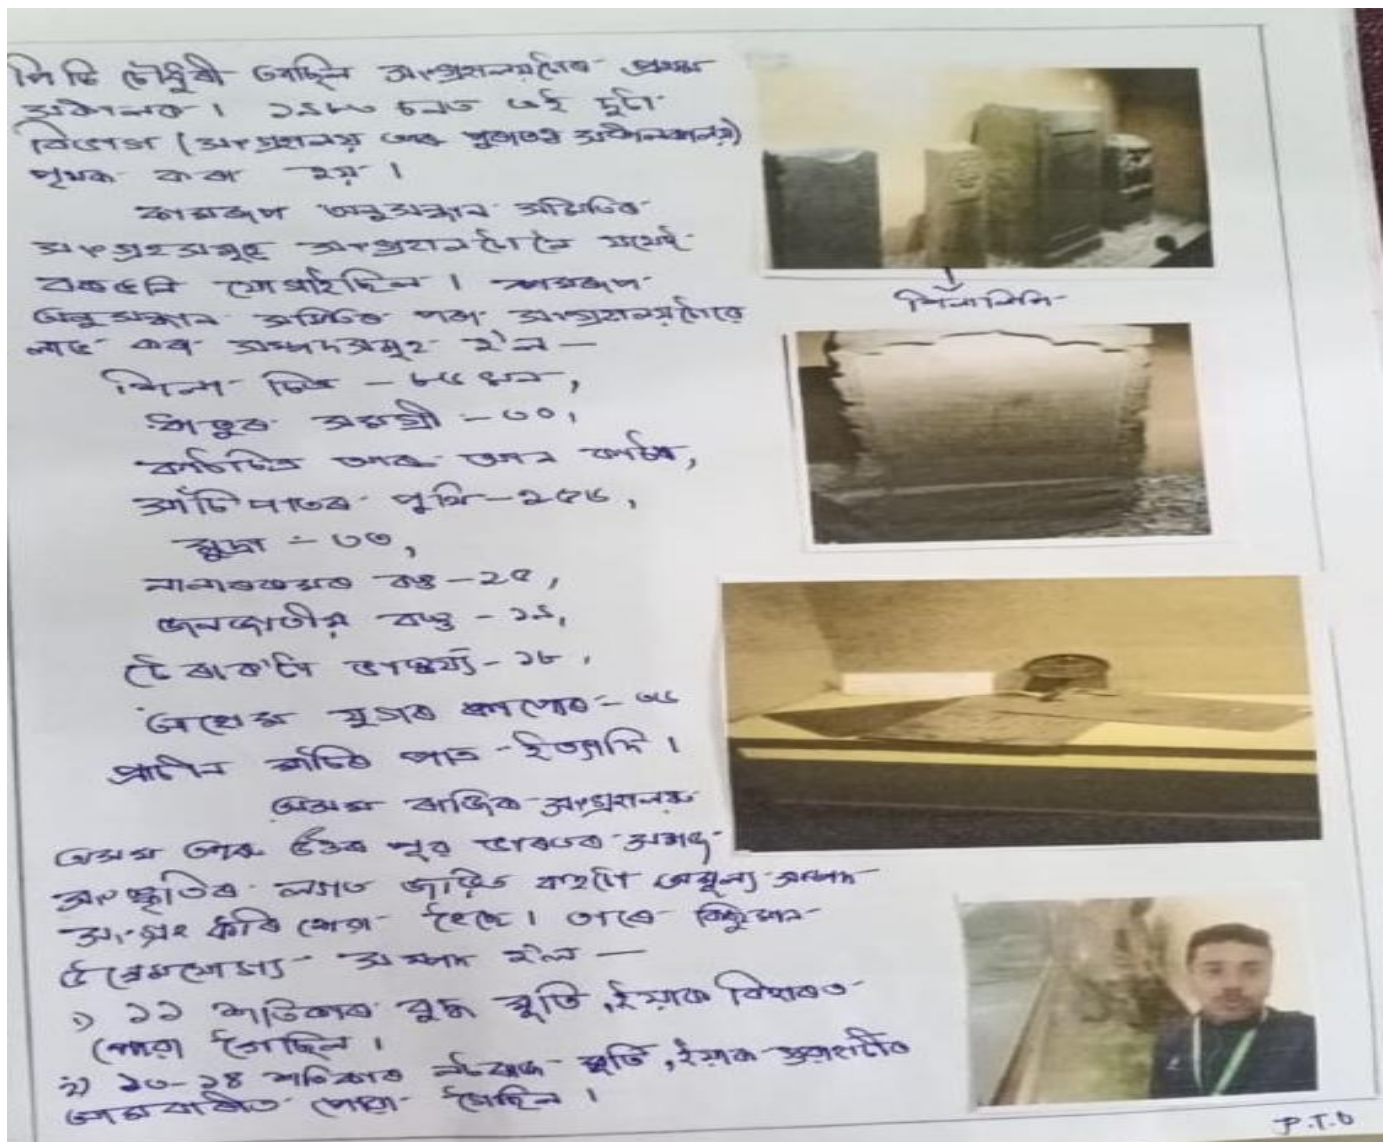 পি চি চৌধুৰী আছিল সংগ্ৰহালয়টোৰ প্ৰথম
সঞ্চালক। ১৯৮৩ চনত এই দুটা
বিভাগ (সংগ্ৰহালয় আৰু পুৰাতত্ব সঞ্চালকালয়)
পৃথক কৰা হয়।
কামৰূপ অনুসন্ধান সমিতিৰ
সংগ্ৰহসমূহে সংগ্ৰহালয়টোলৈ যথেষ্ট
বৰঙনি যোগাইছিল। কামৰূপ
অনুসন্ধান সমিতিৰ পৰা সংগ্ৰহালয়টোৱে
লাভ কৰা সম্পদসমূহ হ'ল —
শিলা চিত্ৰ – ৮৫ খন,
ধাতুৰ সামগ্ৰী – ৩০,
কাঠচিত্ৰ আৰু আন কাঠৰ,
সাঁচিপাতৰ পুথি – ২৫৬,
মুদ্ৰা – ৩৩,
নানাৰকমৰ বস্তু – ২৫,
জনজাতীয় বস্তু – ১৯,
টেৰাক'টা ভাস্কৰ্য্য – ১৮,
যুগৰ কাপোৰ –
প্ৰাচীন মাটিৰ পাত্ৰ – ইত্যাদি।
অসম ৰাজ্যিক সংগ্ৰহালয়ত
অসম আৰু উত্তৰ পূব ভাৰতৰ সমাজ
সংস্কৃতিৰ লগত জড়িত বহুতো অমূল্য সম্পদ
সংগ্ৰহ কৰি থোৱা হৈছে। তাৰে কিছুমান
উল্লেখযোগ্য সম্পদ হ'ল —
১) ১১ শতিকাৰ বুদ্ধ মূৰ্তি, ইয়াক বিহাৰত
পোৱা গৈছিল।
২) ১৩–১৪ শতিকাৰ নটৰাজ মূৰ্তি, ইয়াক গুৱাহাটীৰ
আমবাৰীত পোৱা গৈছিল।
শিলালিপি
P.T.O